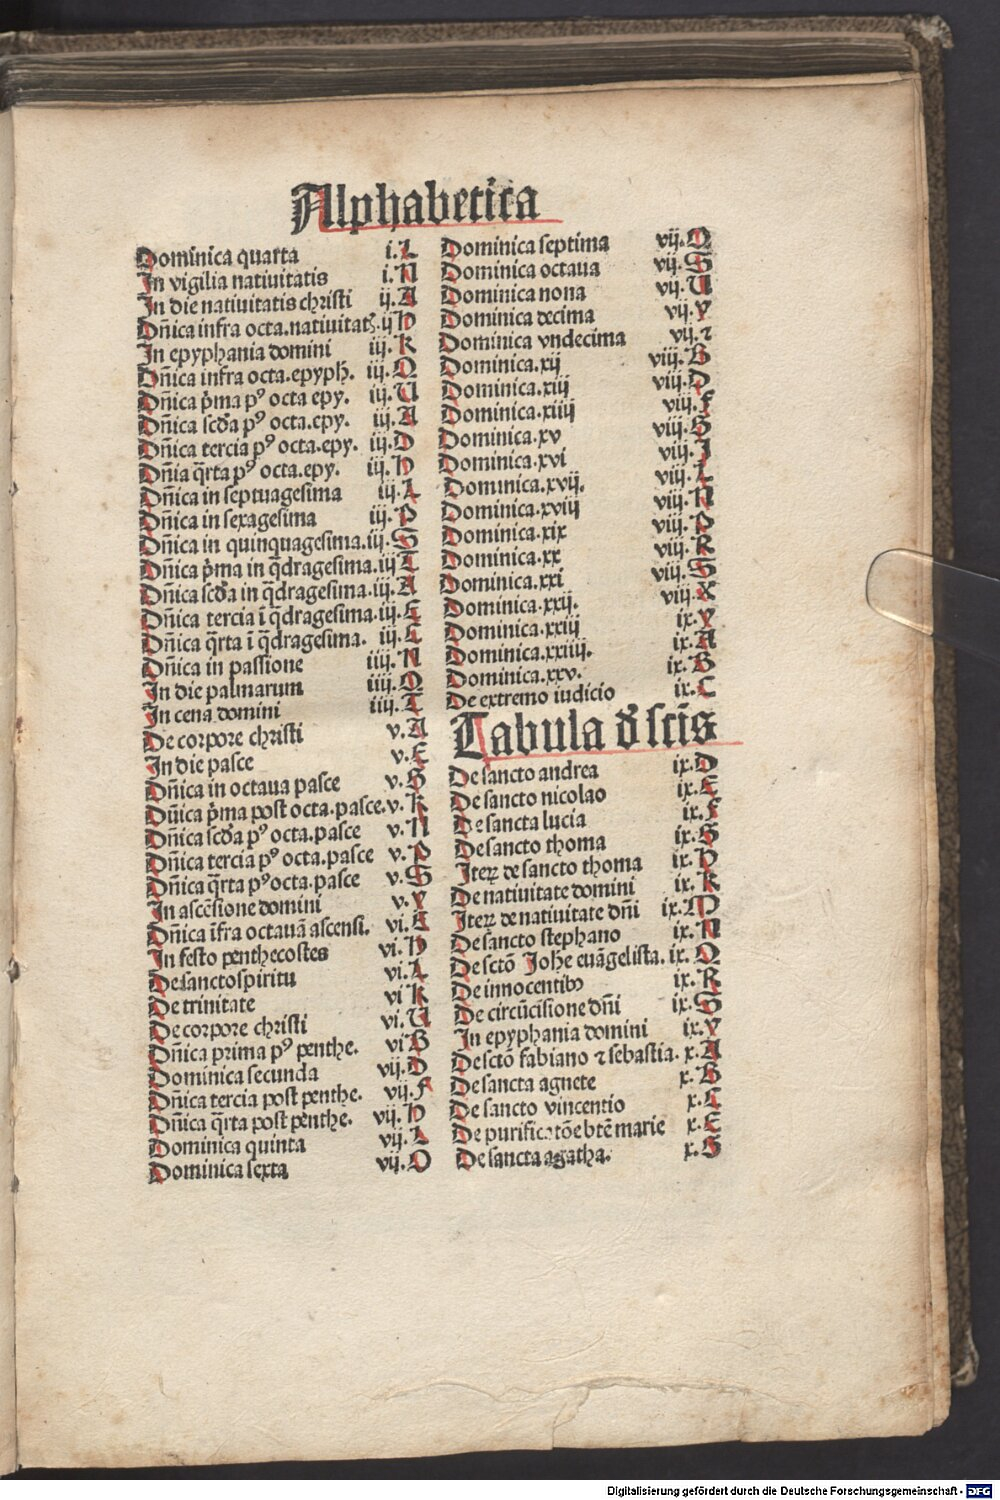 Alphabetica
Dominica quarta i.L
In vigilia natiuitatis i.N
In die natiuitatis christi ij.A
Dn̄ica infra octa.natiuitatꝭ.ij H
In epyphania domini iij.K
Dn̄ica infra octa.epyph. iij.Q
Dn̄ica p̄ma pꝰ octa epy. iij.U
Dn̄ica scd̄a pꝰ octa.epy. iij.A
Dn̄ica tercia pꝰ octa.epy. iij.D
Dn̄ia q̄rta pꝰ octa.epy. iij.H
Dn̄ica in septuagesima iij.L
Dn̄ica in sexagesima iij.P
Dn̄ica in quinquagesima.iij.S
Dn̄ica p̄ma in q̄dragesima.iij T
Dn̄ica scd̄a in q̄dragesima.iij.A
Dn̄ica tercia ī q̄dragesima.iij.E
Dn̄ica q̄rta ī q̄dragesima. iij.L
Dn̄ica in passione iiij.N
In die palmarum iiij.O
In cena domini iiij.T
De corpore christi v.A
In die pasce v.E
Dn̄ica in octaua pasce v.G
Dūica p̄ma post octa.pasce.v.K
Dn̄ica scd̄a pꝰ octa.pasce v.N
Dn̄ica tercia pꝰ octa.pasce v.P
Dn̄ica q̄rta pꝰ octa.pasce v.S
In ascēsione domini v.Y
Dn̄ica īfra octauā ascensi. vi.E
In festo penthecostes vi.H
De sanctospiritu vi.L
De trinitate vi K
De corpore christi vi.U
Dn̄ica prima pꝰ penthe. vi B
Dominica secunda vij.D
Dn̄ica tercia post penthe. vij.F
Dn̄ica q̄rta post penthe. vij.H
Dominica quinta vij.L
Dominica sexta vij.O
Dominica septima vij.Q
Dominica octaua vij.S
Dominica nona vij.U
Dominica decima vij.Y
Dominica vndecima vij.ꝛ
Dominica.xij viij.B
Dominica.xiij viij.D
Dominica.xiiij viij.F
Dominica.xv viij.G
Dominica.xvi viij.J
Dominica.xvij. viij.L
Dominica.xviij viij.N
Dominica.xix viij.P
Dominica.xx viij.R
Dominica.xxi viij.S
Dominica.xxij. viij.X
Dominica.xxiij ix.Y
Dominica.xxiiij. ix.A
Dominica.xxv. ix.B
De extremo iudicio ix.C
Tabula d̄ sctīs
De sancto andrea ix.D
De sancto nicolao ix.E
De sancta lucia ix.F
De sancto thoma ix.G
Iterꝝ de sancto thoma ix.H
De natiuitate domini ix.K
Iterꝝ de natiuitate dn̄i ix.M
De sancto stephano ix.N
De sctō Johe euāgelista. ix.O
De innocentibꝰ ix.R
De circūcisione dn̄i ix.S
In epyphania domini ix.Y
De sctō fabiano ⁊ sebastia. x.A
De sancta agnete x.B
De sancto vincentio x.C
De purificatōe btē marie x.E
De sancta agatha. x.G
Digitalisierung gefördert durch die Deutsche Forschungsgemeinschaft - DFG